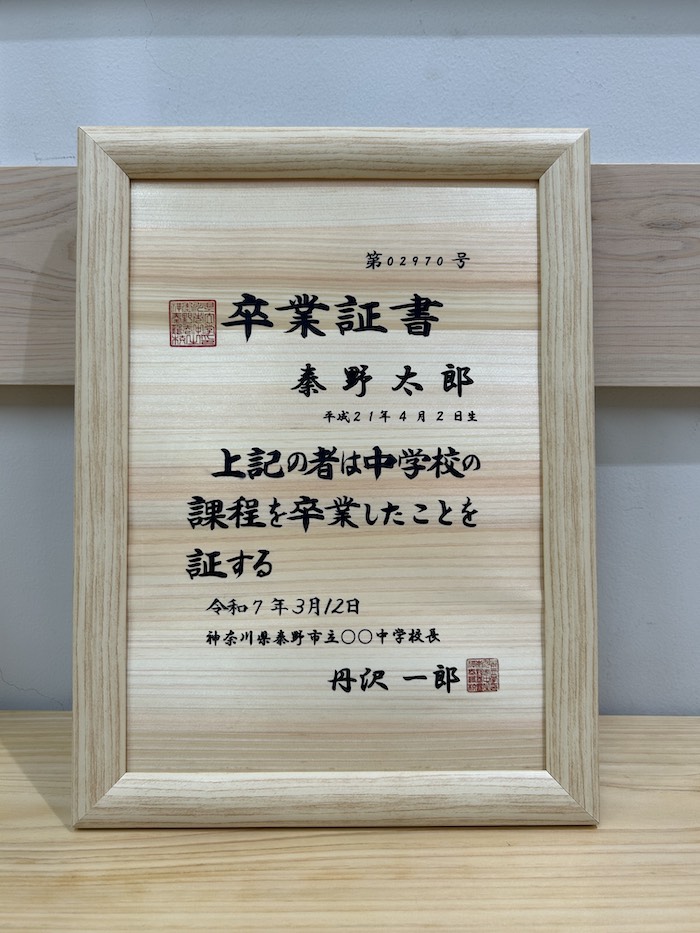 第02970号
卒業証書
秦野太郎
平成21年4月2日生
上記の者は中学校の
課程を卒業したことを
証する
令和7年3月12日
神奈川県秦野市立○○中学校長
丹沢 一郎